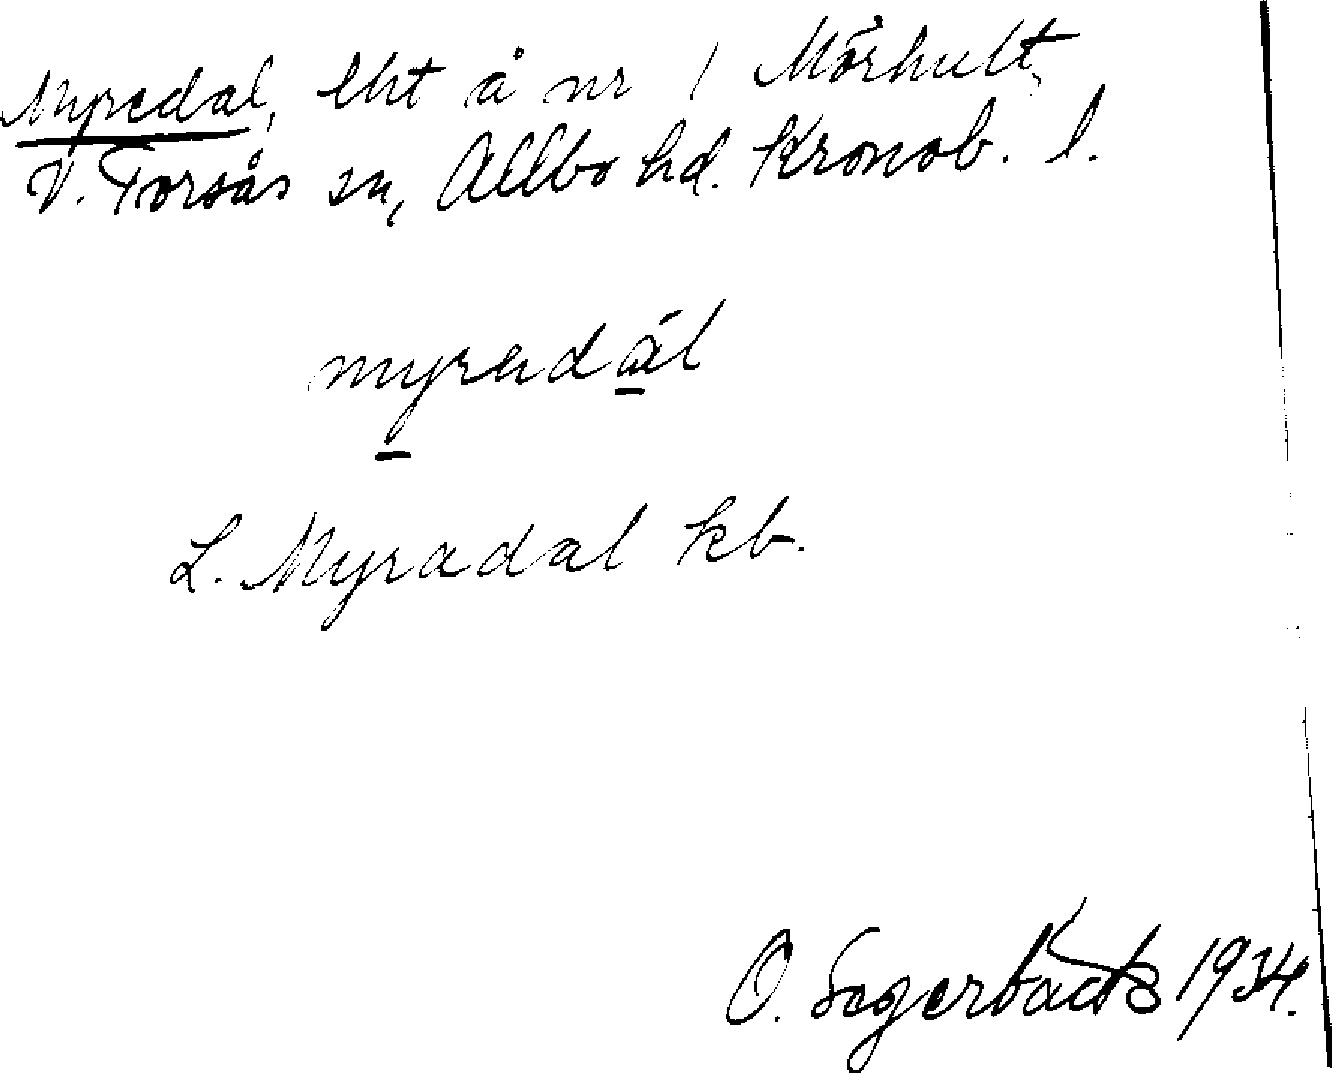 Myredal, lht å nr 1 Mörhult,
V. Torsås sn, Allbo hd. Kronob. l.
myradál
L. Myradal kb.
O. 1934.